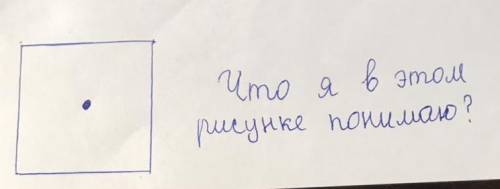 Что я в этом
рисунке понимаю?